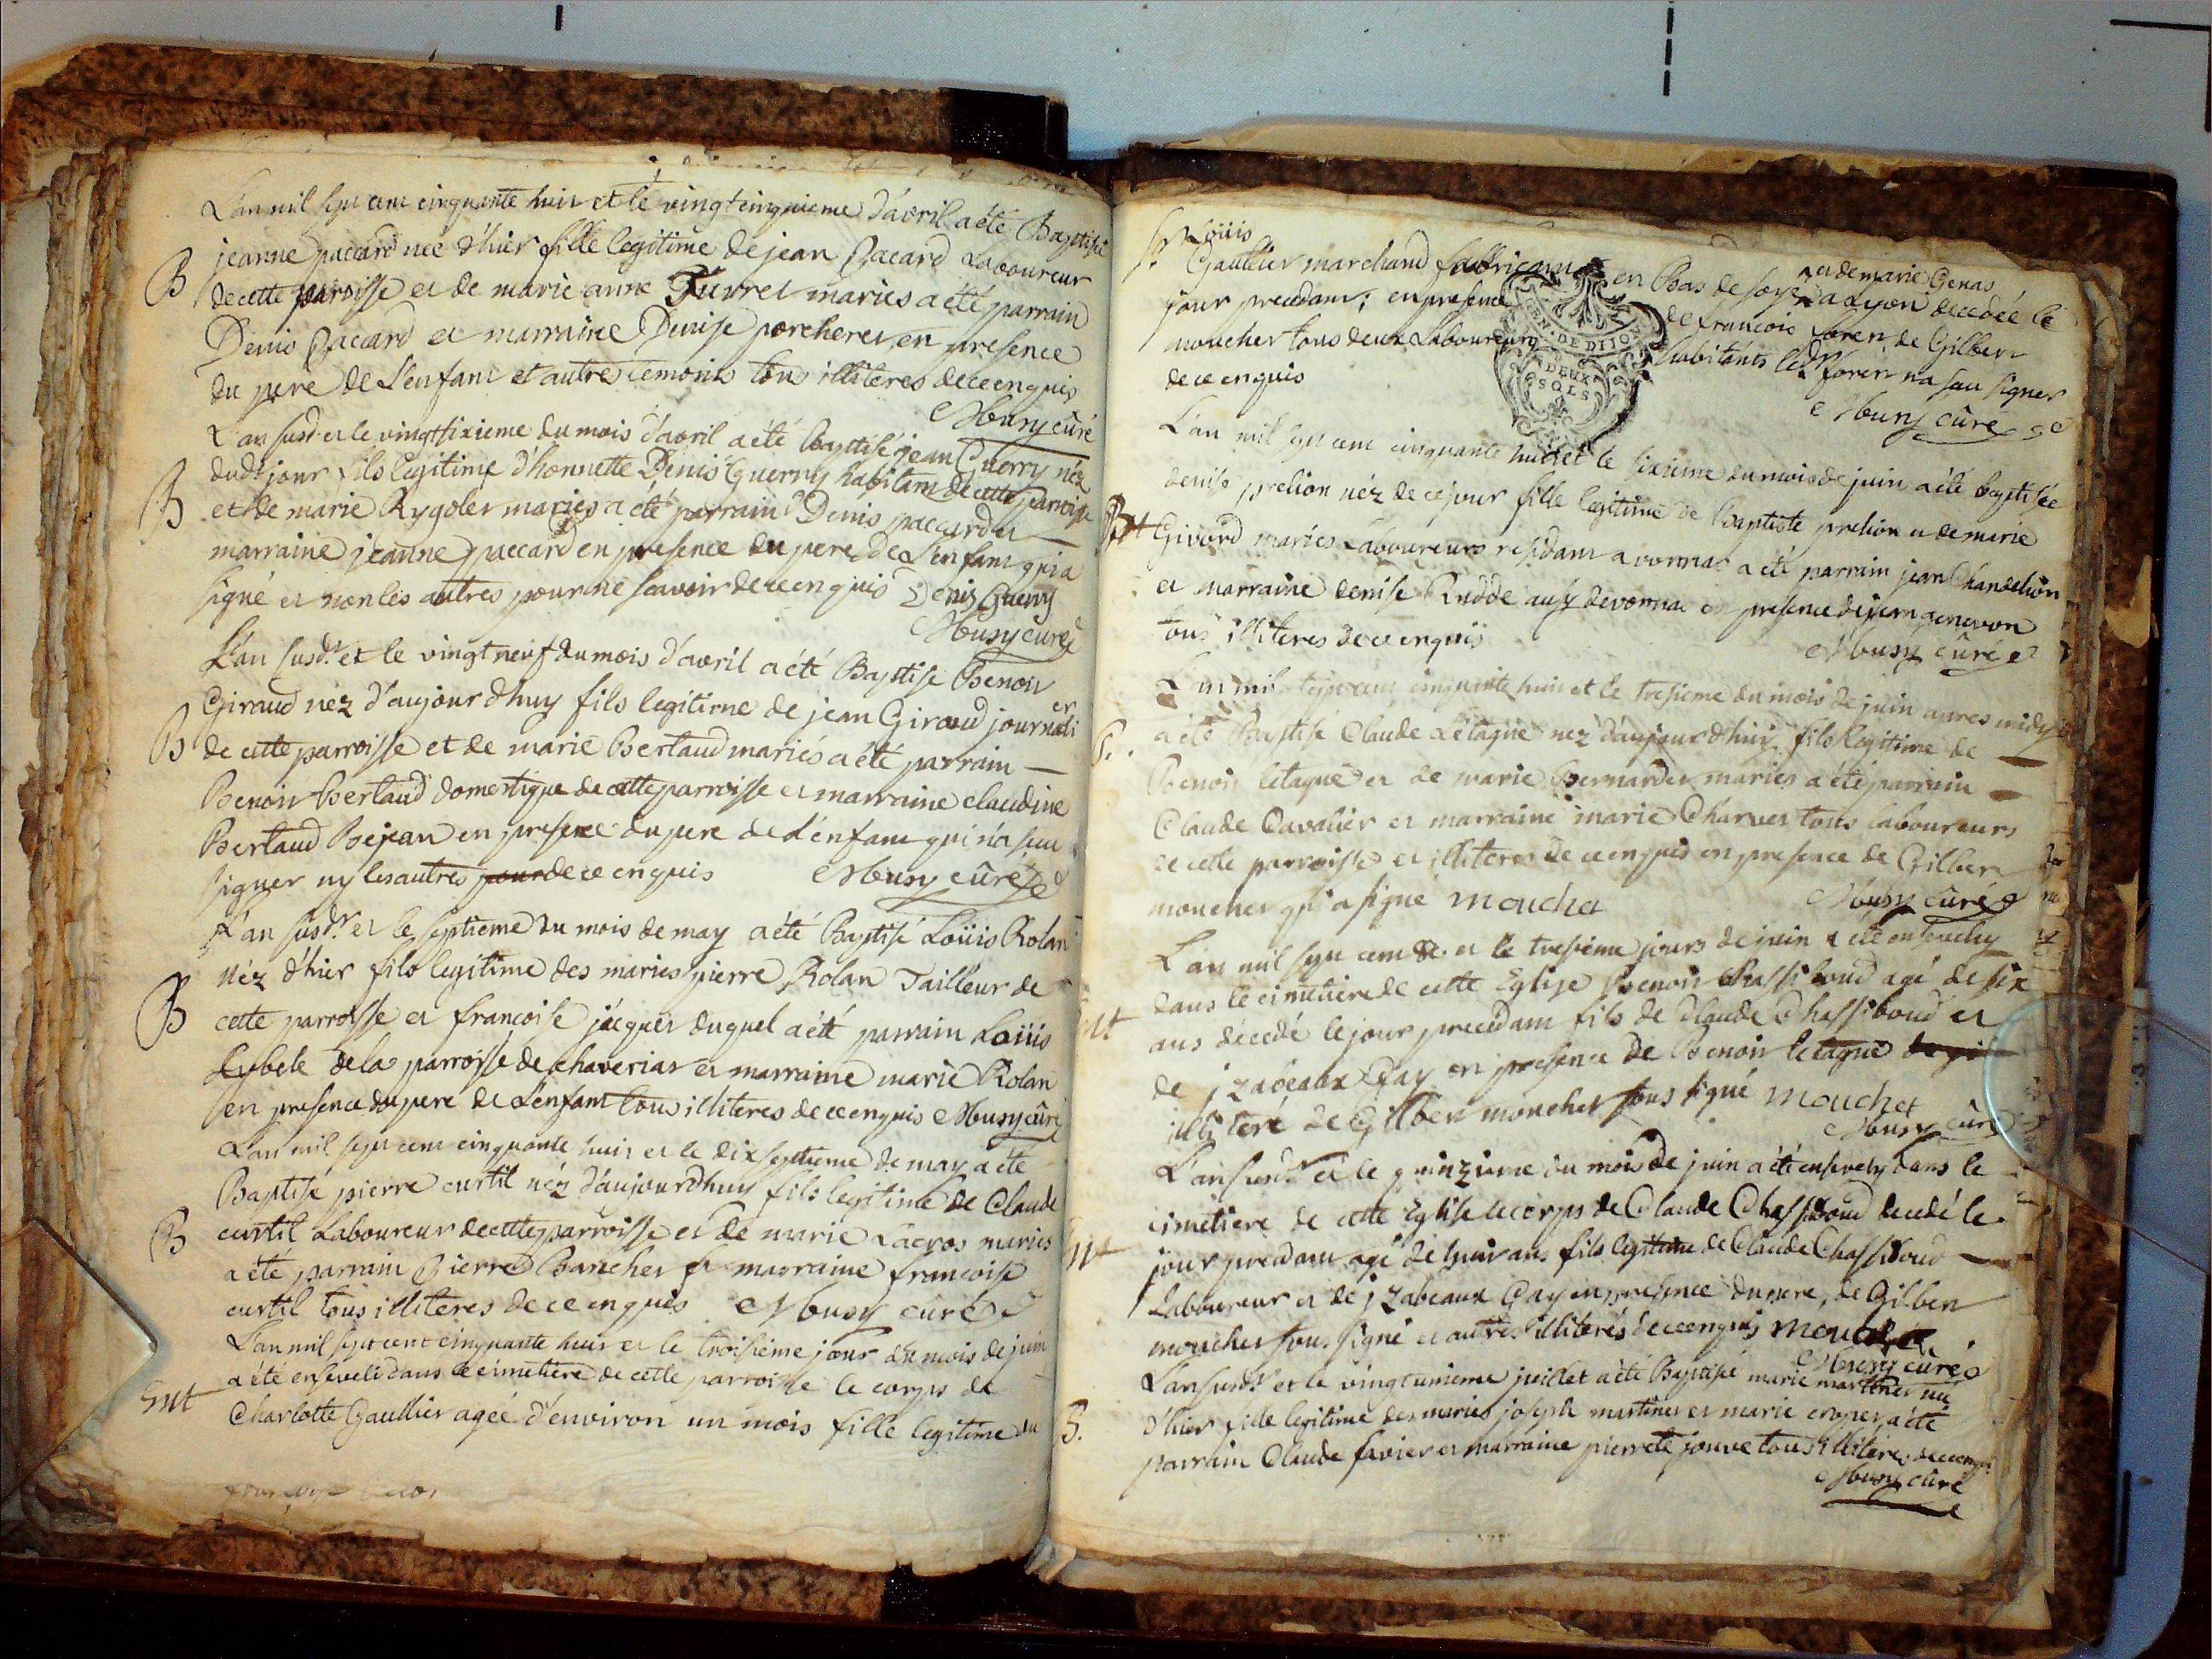 L'an mil sept cent cinquante huit et le vingt cinquieme d'avril a été Baptisée
jeanne paccard née d'hier fille legitime de jean Pacard Laboureur
B
de cette parroisse et de marie anne Furret mariés a été parrain
Denis Paccard et marraine Denise porcheret, en presence
du pere de L'enfant et autres temoins tous illiteres de ce enquis
Mbusy cûré
L'an susd. et le vingt sixieme du mois d'avril a été baptisé jean Guerry néz
dud. jour fils legitime d'honnette Denis Guerry habitant de cette parroisse
B
et de marie Rygolet mariés a été parrain Denis paccard et
marraine jeanne paccard en presence du pere de L'enfant qui a
signé et non les autres pour ne scavoir de ce enquis Denis Guerry
Mbusy curé
L'an susd. et le vingt neuf du mois d'avril a été Baptisé Benoit
Giraud néz d'aujourdhuy fils legitime de jean Giraud journali er
B
de cette parroisse et de marie Bertaud mariés a été parrain
Benoit Bertaud domestique de cette parroisse et marraine claudine
Bertaud Bejean en presence du pere de L'enfant qui n'a sceu
signer ny les autres pour de ce enquis Mbusy cûré
L'an susd. et le septieme du mois de may a été Baptisé Loüis Rolan
néz d'hier fils legitime des mariés pierre Rolan Tailleur de
B
cette parroisse et francoise jacquet duquel a été parrain Loüis
Lybele de la parroisse de chaveriat et marraine marie Rolan
en presence du pere de L'enfant tous illiteres de ce enquis Mbusy cûré
L'an mil sept cent cinquante huit et le dix septieme de may a été
Baptisé pierre curtil néz d'aujourdhuy fils legitime de Claude
B
curtil Laboureur de cette parroisse et de marie Lacros mariés
a été parrain Pierre Bancher et marraine francoise
curtil tous illiteres de ce enquis Mbusy curé
L'an mil sept cent cinquante huit et le troisieme jour du mois de juin
a été enseveli dans le cimetiere de cette parroisse le corps de
Ent
Charlotte Gaullier agée d'environ un mois fille legitime du
Sr. Loüis
Gaullier marchand fabricant en Bas de soye et de marie Genas a Lyon decedée le
jour precedant; en presence de francois foren de Gilbert
moucher tous deux Laboureurs habitants led. foren n'a sceu signer
de ce enquis
Mbusy cûré
GEN. DE DIJON
DEUX
SOLS
L'an mil sept cent cinquante huit et le sixieme du mois de juin a été baptisée
denise prelion néz de ce jour fille legitime de Baptiste prelion et de marie
Givord mariés Laboureurs residant a vonnas a été parrain jean Chandelion
et marraine denise Rudde aussy de vonnas en presence de jean genevon
tous illiteres de ce enquis
Mbusy cûré
L'an mil sept cent cinquante huit et le tresieme du mois de juin apres midy
a été Baptisé Claude Létague néz d'aujourdhuy fils legitime de
B.
Benoit letague et de marie Bernardet mariés a été parrain
Claude Cavalier et marraine marie Charvet tous laboureurs
de cette parroisse et illiteres de ce enquis en presence de Gilbert
moucher qui a signé mouchet
Mbusy cûré
L'an mil sept cent &. et le tresieme jours de juin a été ensevely
dans le cimetiere de cette Eglise Benoit Chassiboud agé de six
Ent
ans décédé le jour precedant fils de Claude Chassiboud et
de jzabeaux Gay en presence de Benoit letague
illiteré de Gilbert moucher sous signé mouchet
Mbusy cûré
L'an susd. et le quinzieme du mois de juin a été ensevely dans le
cimetiere de cette Eglise le corps de Claude Chassiboud decedé le
Ent
jour precedant agé de huit ans fils legitime de Claude Chassiboud
Laboureur et de jzabeaux Gay en presence du pere, de Gilbert
moucher sous signé et autres illiterés de ce enquis mouchet
Mbusy curé
L'an susd. et le vingt unieme juillet a été Baptisée marie martinet née
d'hier fille legitime des mariés joseph martinet et marie croper a été
B.
parrain Claude favier et marraine pierrete jouve tous illiteres de ce enquis
Mbusy cûré